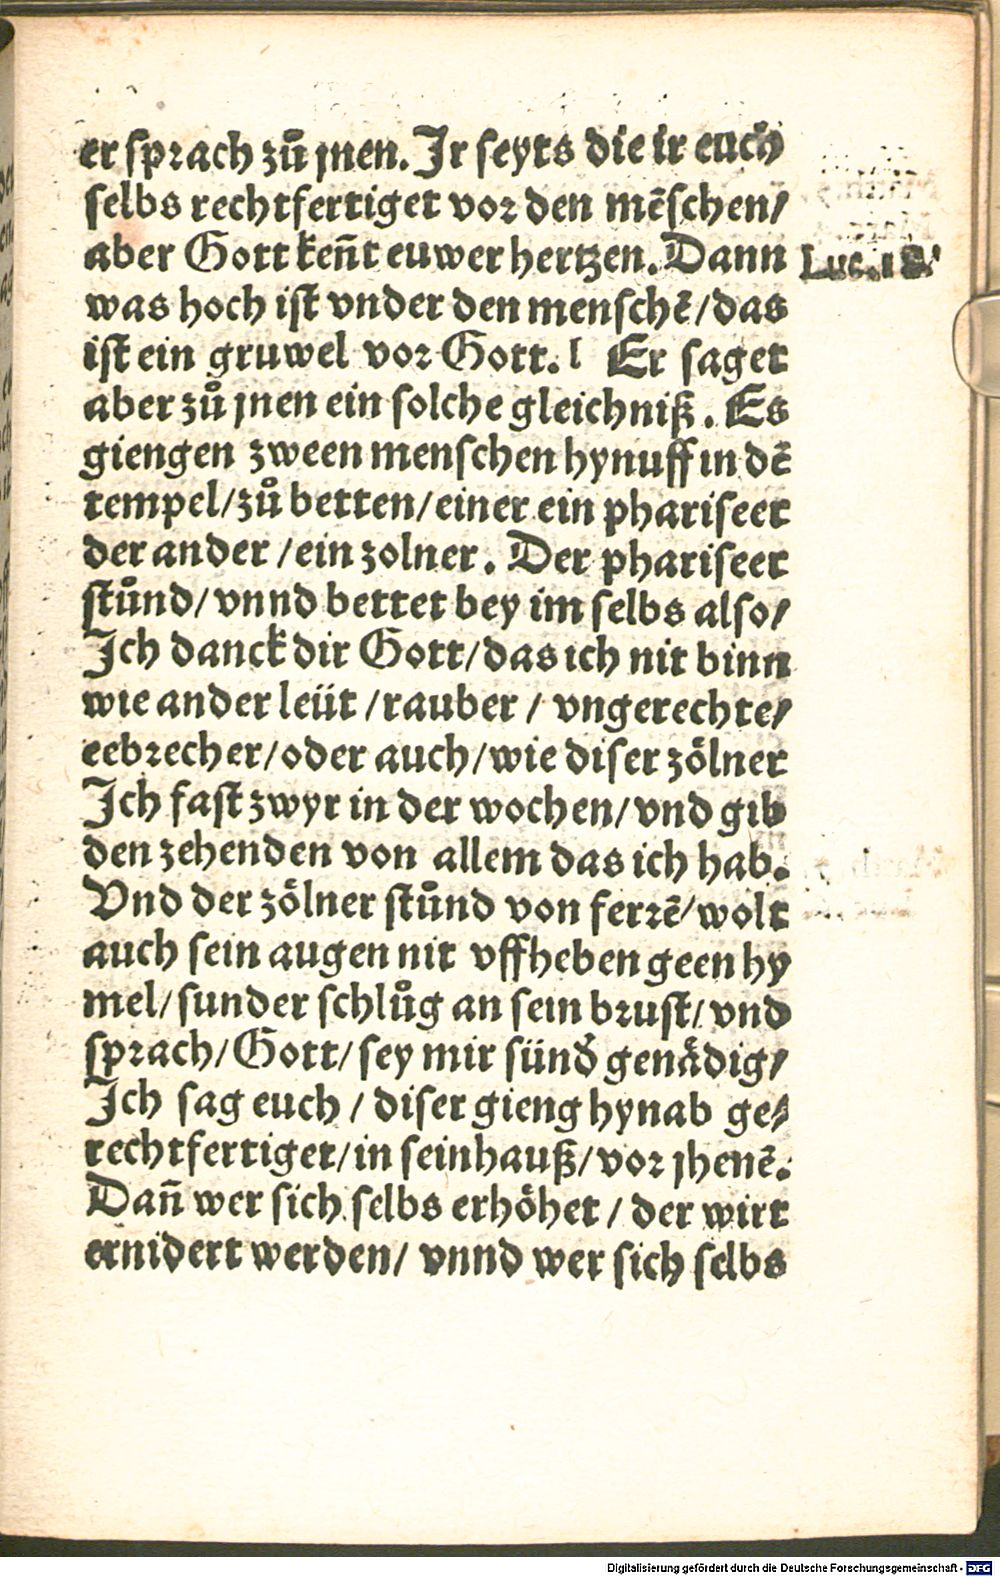 er sprach zů jnen. Ir seyts die ir euch
selbs rechtfertiget vor den mēschen/
aber Gott keñt euwer hertzen. Dann
Luc. 18.
was hoch ist vnder den menschē/das
ist ein gruwel vor Gott. l Er saget
aber zů jnen ein solche gleichniß. Es
giengen zween menschen hynuff in dē
tempel/zů betten/einer ein phariseer
der ander/ein zolner. Der phariseer
stůnd/vnnd bettet bey im selbs also/
Ich danck dir Gott/das ich nit binn
wie ander leüt/rauber/vngerechte/
eebrecher/oder auch/wie diser zölner
Ich fast zwyr in der wochen/vnd gib
den zehenden von allem das ich hab.
Vnd der zölner stůnd von ferrē/wolt
auch sein augen nit vffheben geen hy
mel/sunder schlůg an sein brust/vnd
sprach/Gott/sey mir sünd' genådig/
Ich sag euch/diser gieng hynab ge/
rechtfertiget/in seinhauß/vor jhenē.
Dañ wer sich selbs erhöhet/der wirt
ernidert werden/vnnd wer sich selbs
Digitalisierung gefördert durch die Deutsche Forschungsgemeinschaft - DFG